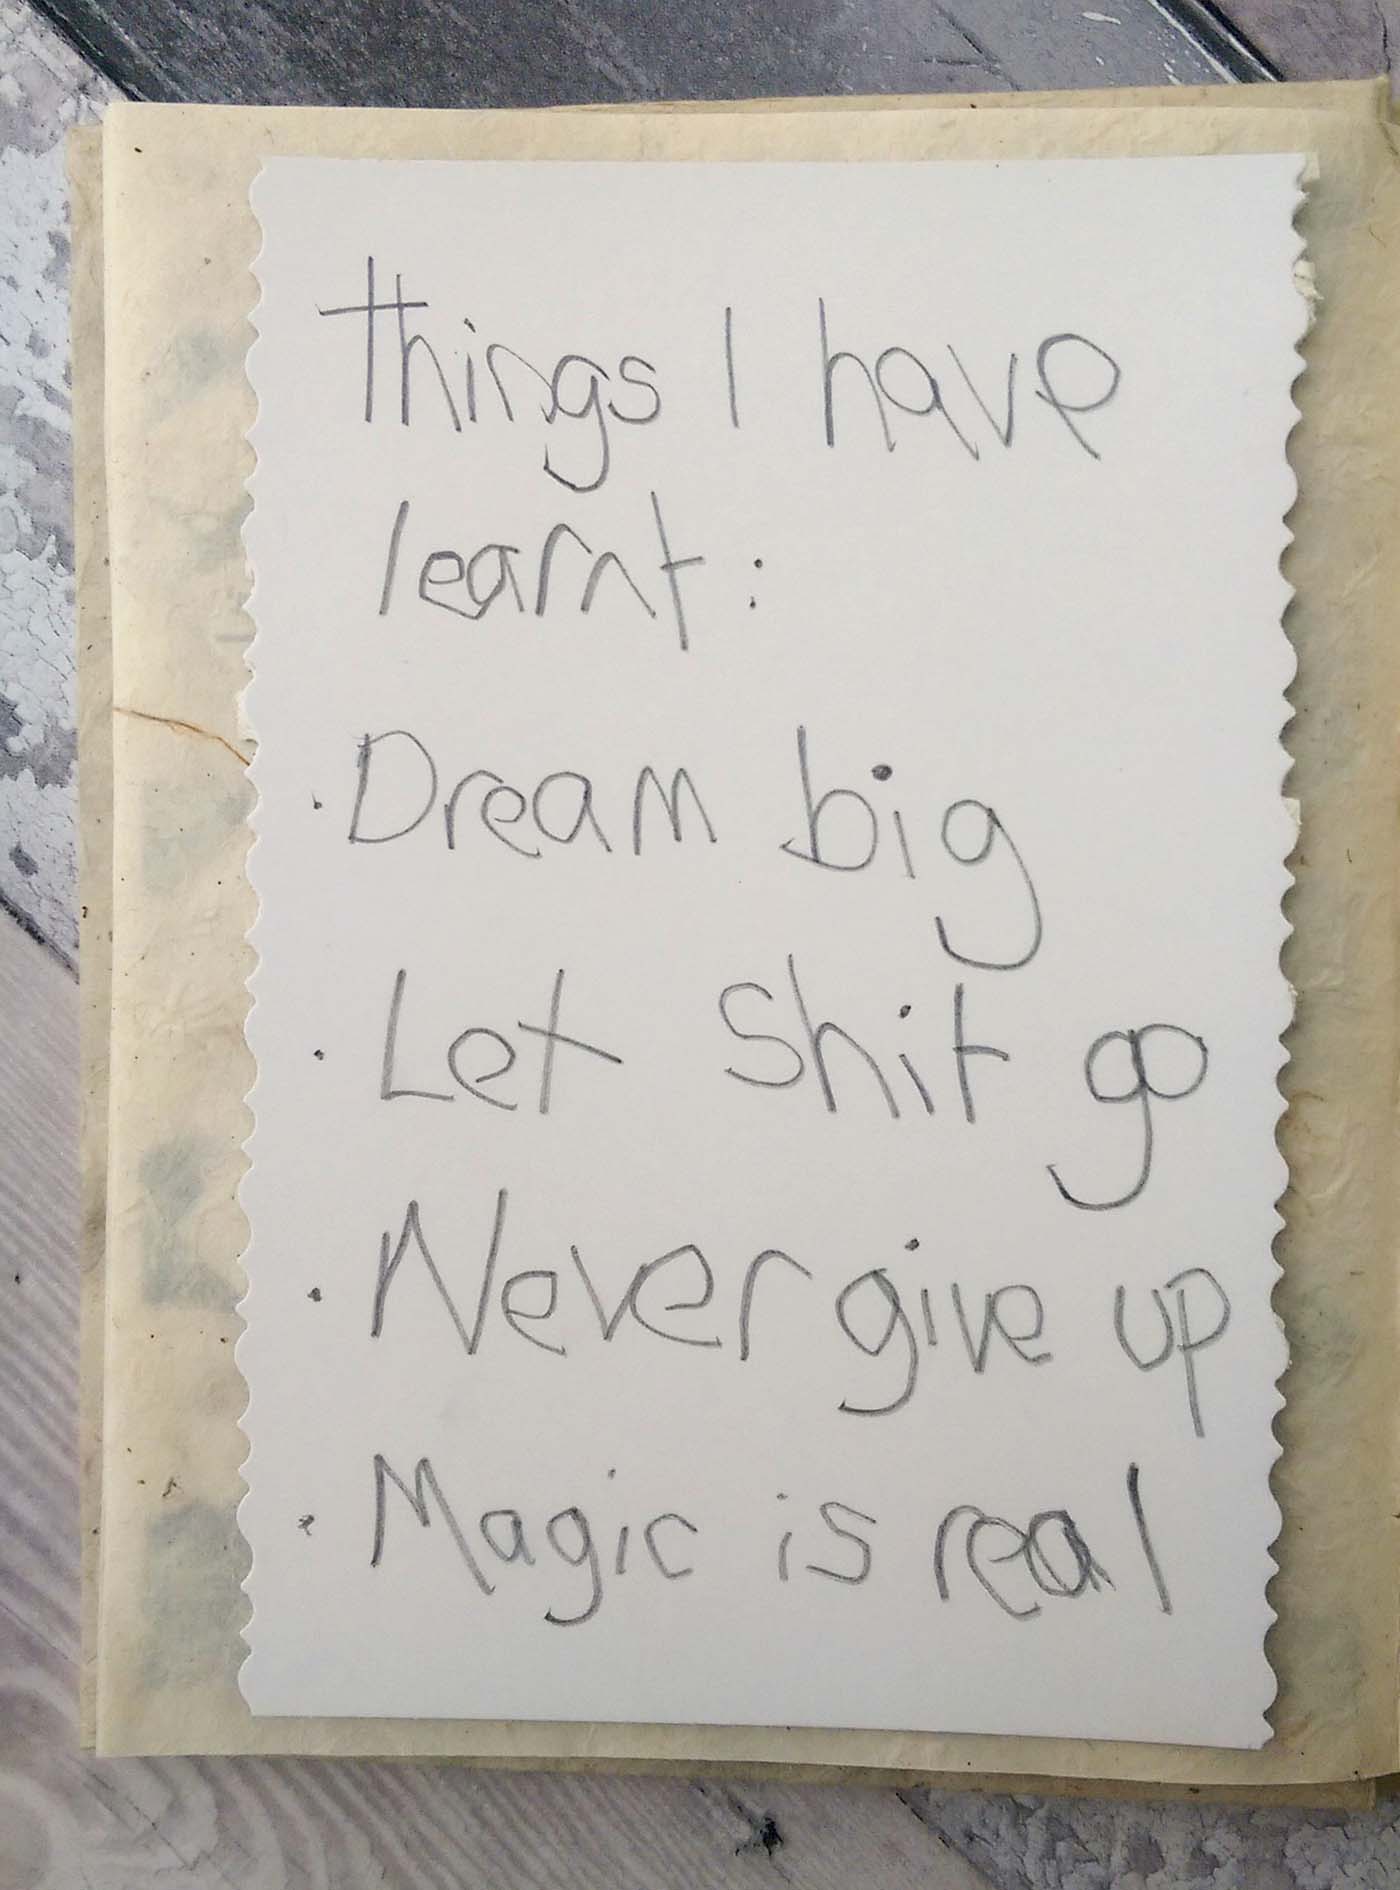 things I have
learnt:
· Dream big
· Let Shit go
· Never give up
· Magic is real